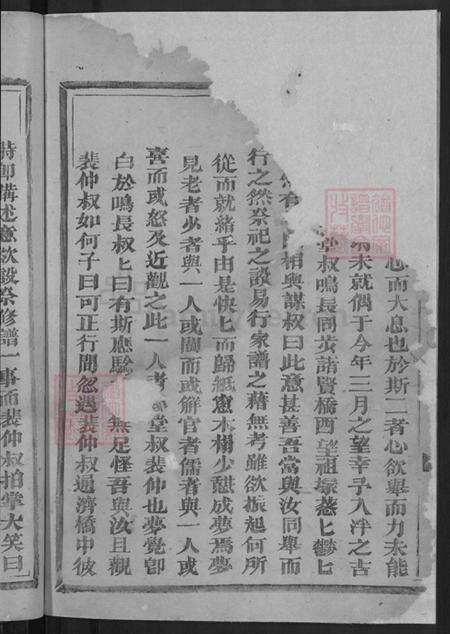 心而大息也於斯二者心欲舉而力未能
未就偶于今年三月之望幸予入泮之吉
堂叔鳴長同英諸賢橋西望祖塚蒸匕鬱匕
相與謀叔曰此意甚善吾當與汝同舉而
行之然祭祀之設易行家譜之藉無考雖欲振起何所
從而就緒乎由是快匕而歸紙窻木榻少憇成夢焉夢
見老者少者與一人或鬪而或觧官者儒者與一人或
喜而或怒及近觀之此一人者堂叔裴仲也夢覺卽
白於鳴長叔匕曰有斯應驗無足怪吾與汝且觀
裴仲叔如何予曰可正行間忽遇裴仲叔通濟橋中彼
時卽備述意欲設祭修譜一事而裴仲叔拍掌大笑曰